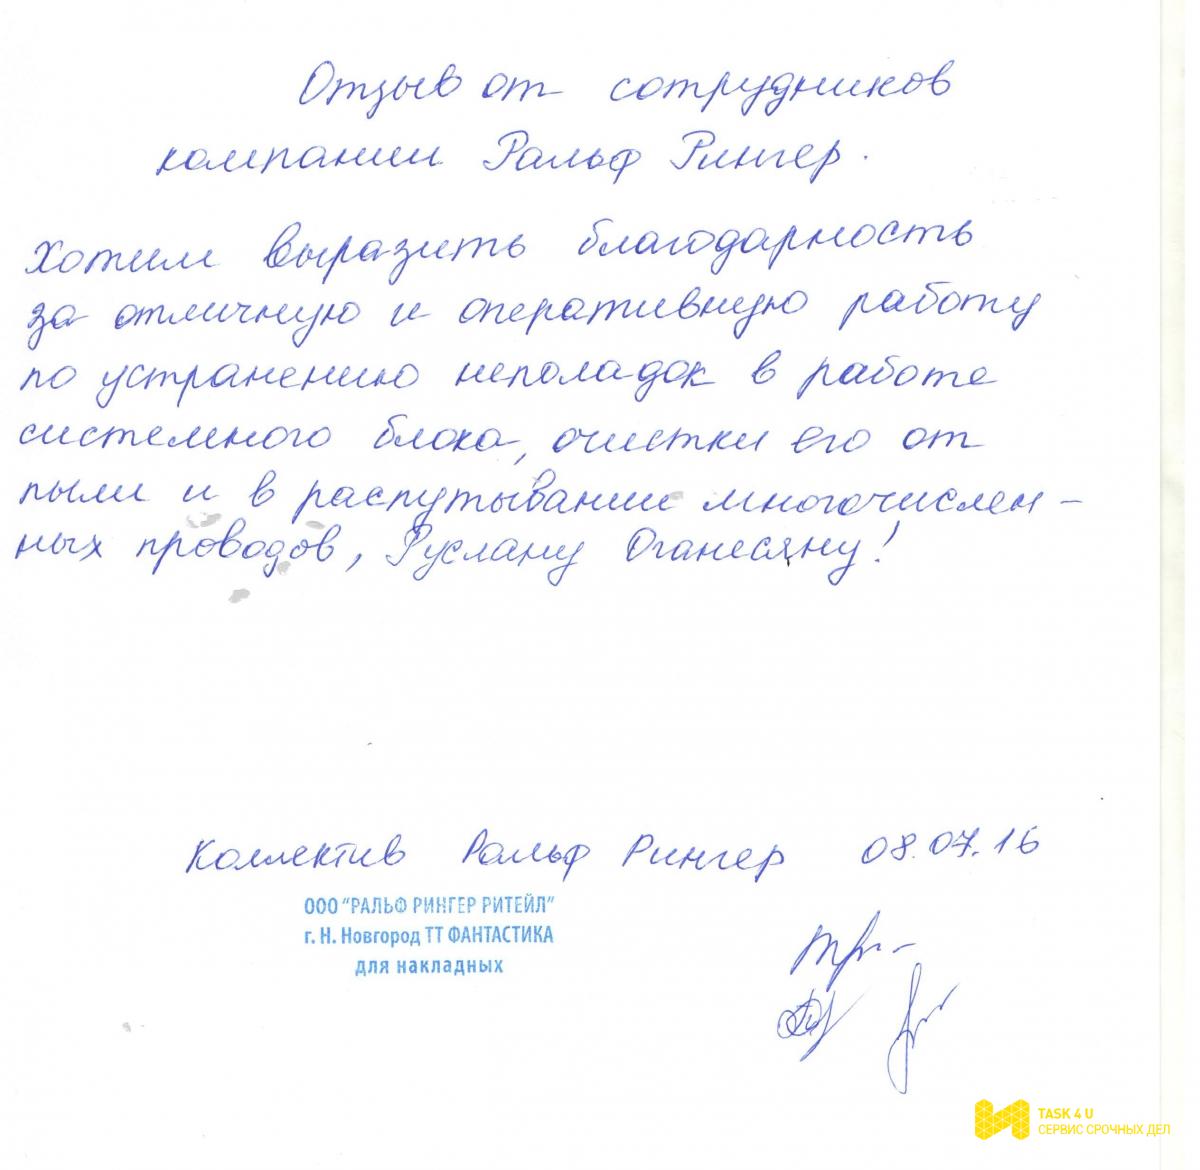 Отзыв от сотрудников
компании Ральф Рингер.
Хотим выразить благодарность
за отличную и оперативную работу
по устранению неполадок в работе
системного блока, очистки его от
пыли и в распутывание многочислен-
ных проводов, Руслану Оганесяну!
Коллектив Ральф Рингер 08.07.16
ООО "РАЛЬФ РИНГЕР РИТЕЙЛ"
г. Н. Новгород ТТ ФАНТАСТИКА
для накладных
TASK 4 U
СЕРВИС СРОЧНЫХ ДЕЛ